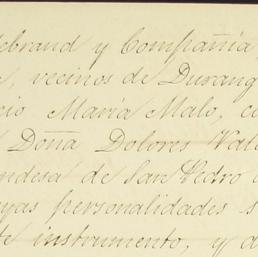 ebrand y Compañia
, vecinos de Durang
cio Maria Malo, co
Doña Dolores Val
ndesa de San Pedro
yas personalidades s
te instrumento, y a